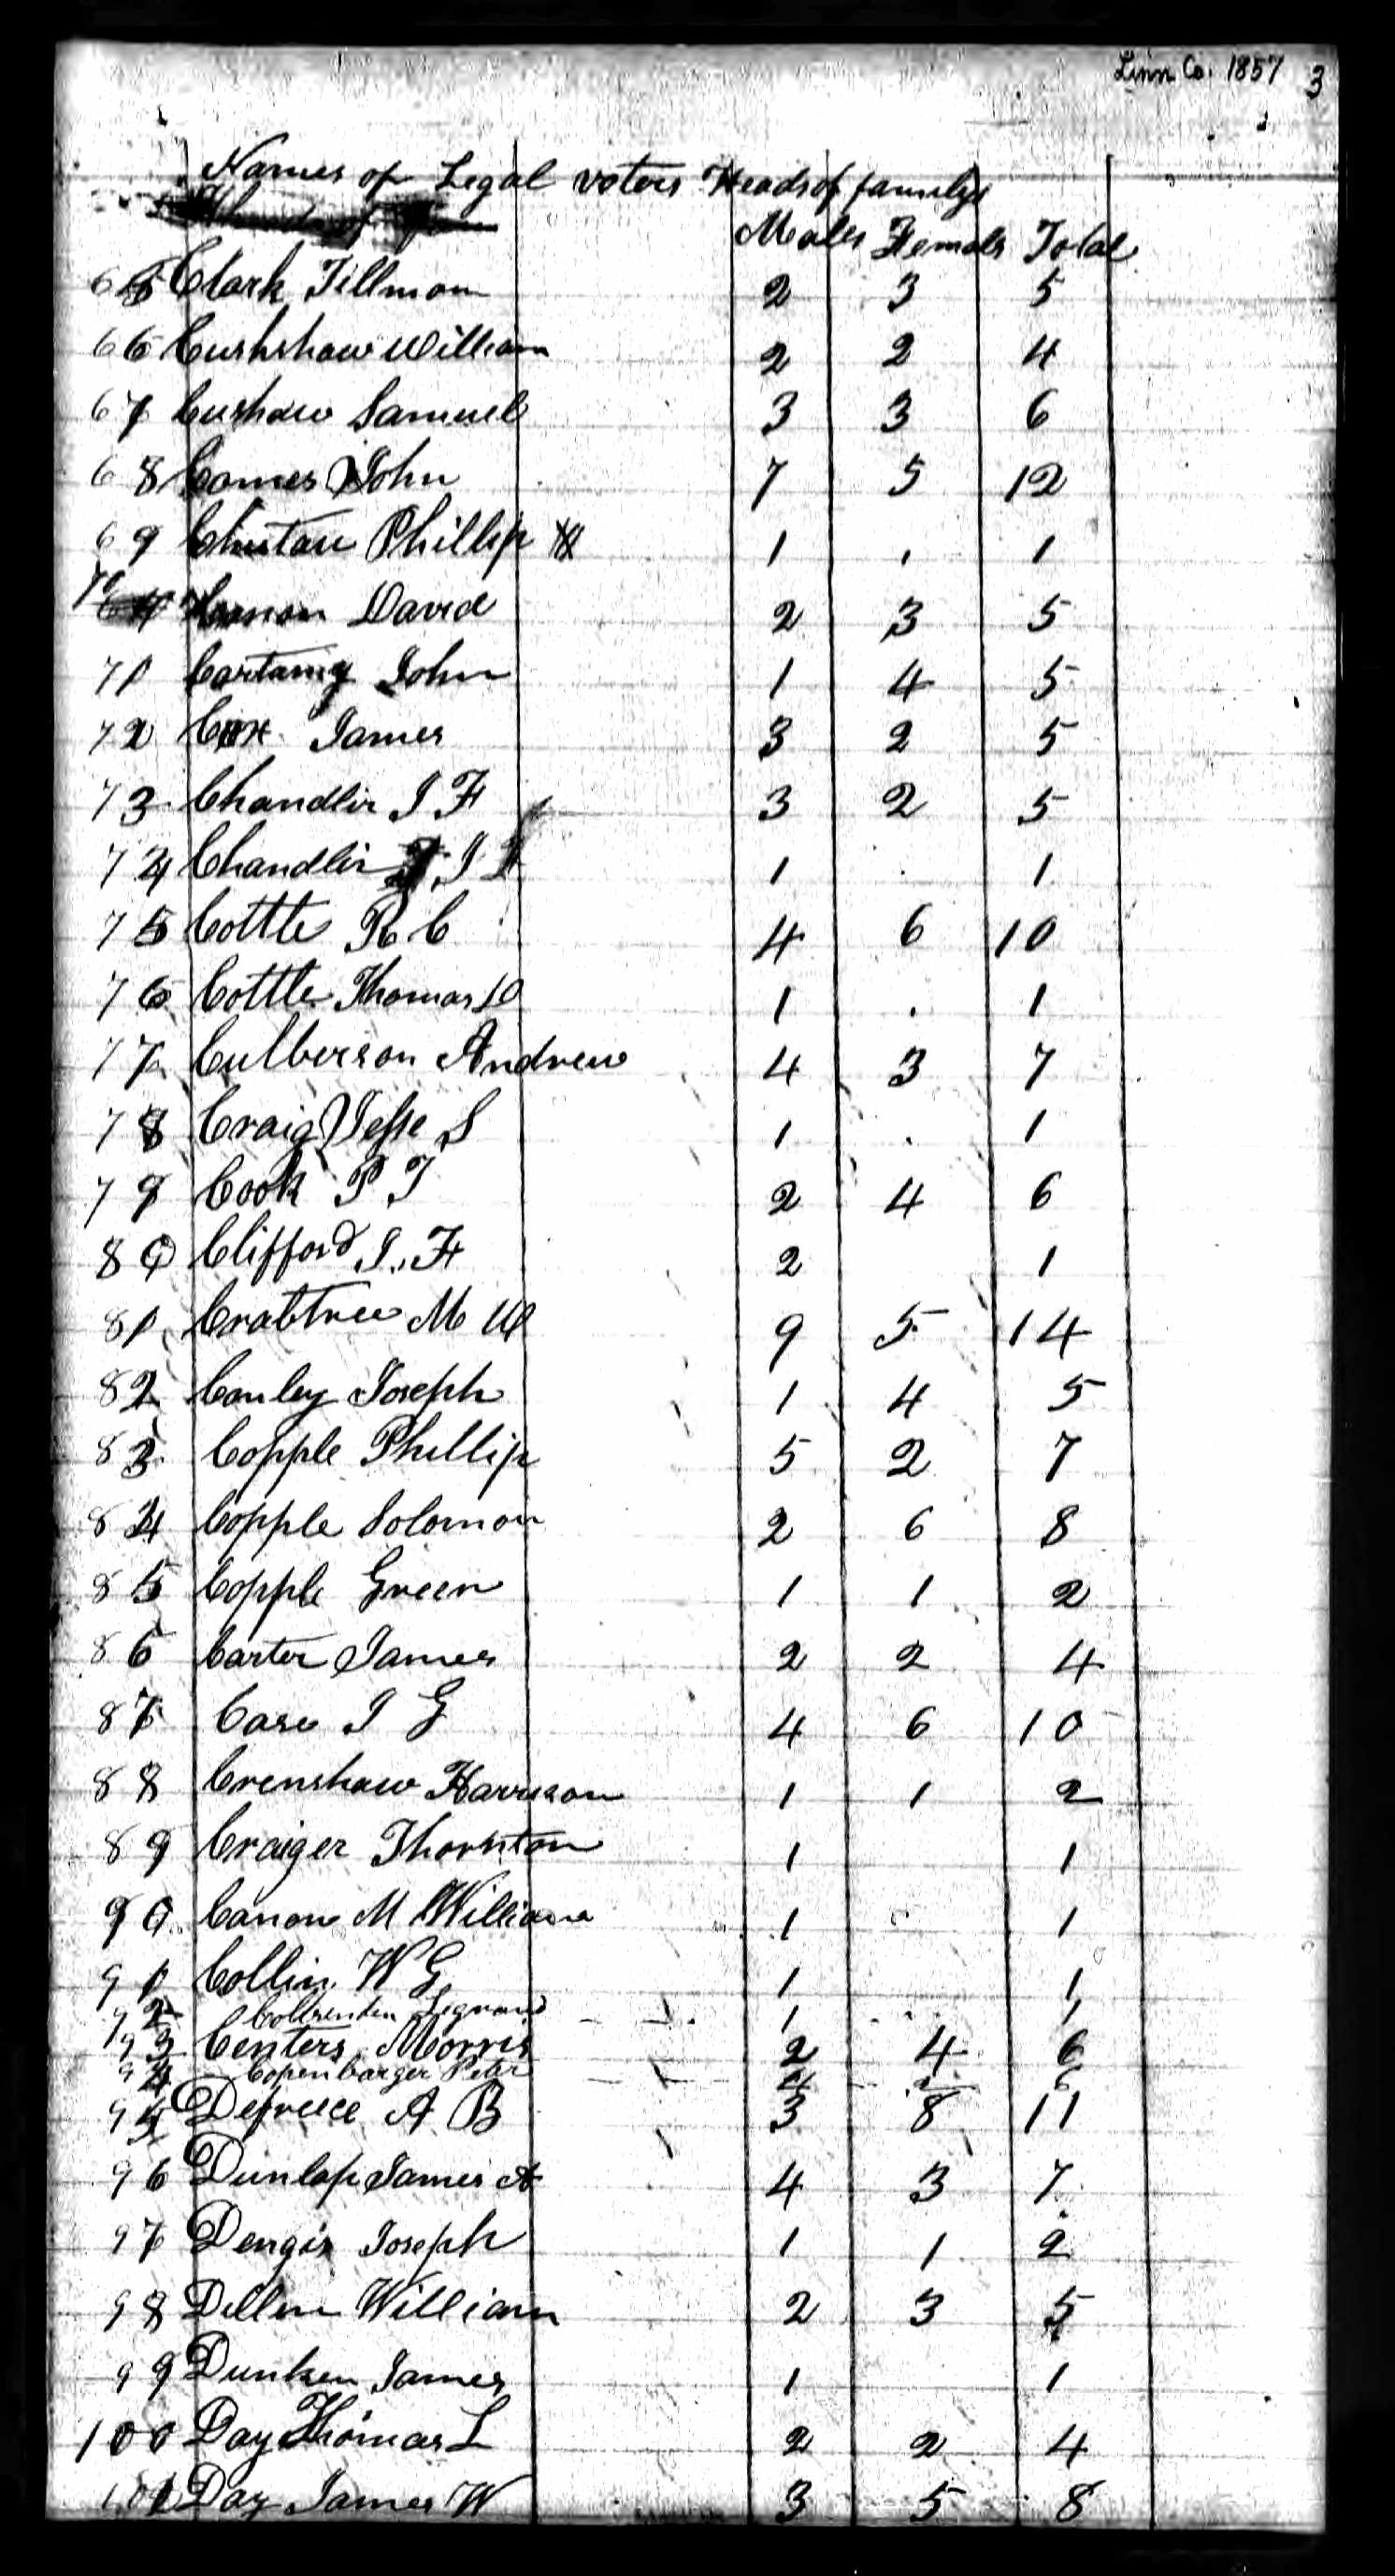 Linn Co. 1857 3
Names of Legal voters Heads of family
Males Femals Total
65 Clark Tillman 2 3 5
66 Cushshaw William 2 2 4
67 Cushaw Samuel 3 3 6
68 Comes John 7 5 12
69 Phillip 1 . 1
70 David 2 3 5
71 John 1 4 5
72 Cox James 3 2 5
73 Chandler J F 3 2 5
74 Chandler J 1 . 1
75 Cottle R C 4 6 10
76 Cottle Thomas D 1 . 1
77 Culberson Andrew 4 3 7
78 Craig Jesse S 1 . 1
79 Cook P T 2 4 6
80 Clifford J. F 2 1
81 Crabtree M W 9 5 14
82 Conley Joseph 1 4 5
83 Copple Phillip 5 2 7
84 Copple Solomon 2 6 8
85 Copple Green 1 1 2
86 Carter James 2 2 4
87 Case J G 4 6 10
88 Crenshaw Harrison 1 1 2
89 Craiger Thornton 1 1
90 Canon M William 1 1
91 Collin W G 1 1
92 Legrand 1 1
93 Centers Morris 2 4 6
94 Copenbarger Peter
95 Depreece A B 3 8 11
96 Dunlap James A 4 3 7
97 Dengis Joseph 1 1 2
98 Dellen William 2 3 5
99 Dunken James 1 1
100 Day Thomas L 2 2 4
101 Day James W 3 5 8